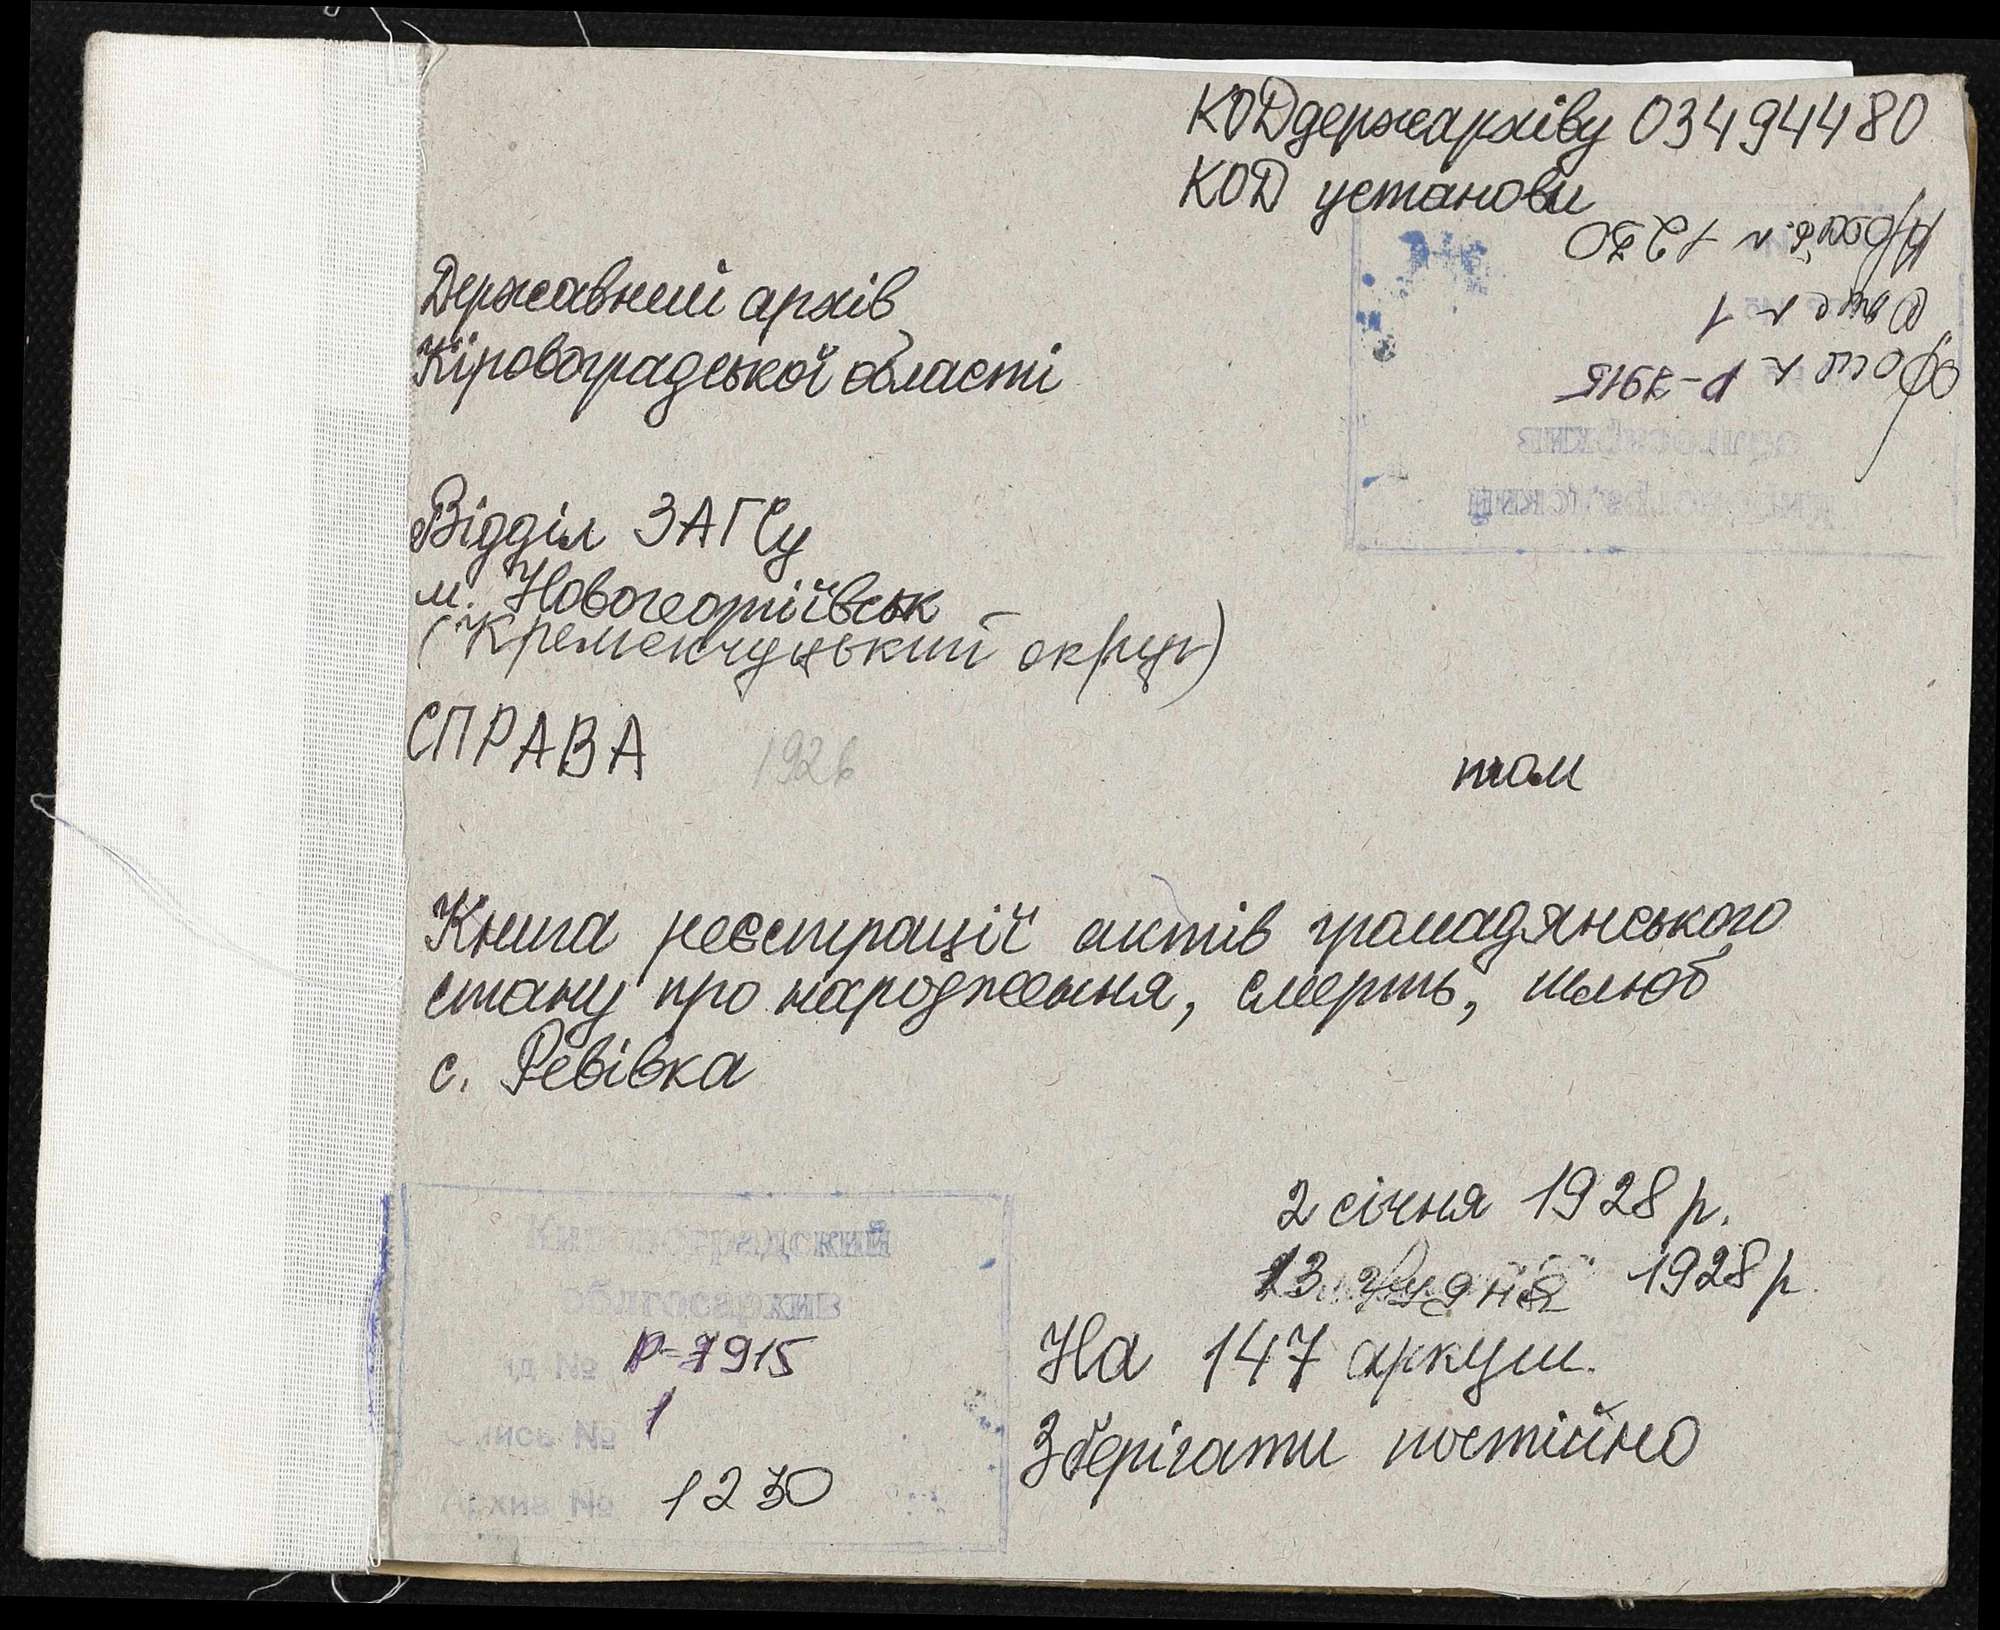 КОД держархіву 03494480
КОД установи
Архив. n 1230
Опис n 1
Фонд n Р-7915
облгосархив
Кировоградский
Державний архів
Кіровоградської області
Відділ ЗАГСу
м. Новогеоргіївськ
(Кременчуцький округ)
СПРАВА 1926 том
Книга реєстрації актів громадянського
стану про народження, смерть, шлюб
с. Ревівка
2 січня 1928 р.
13 грудня 1928 р.
На 147 аркуш.
Зберігати постійно
Кировоградский
облгосархив
д № Р-7915
Опись № 1
Архив № 1230